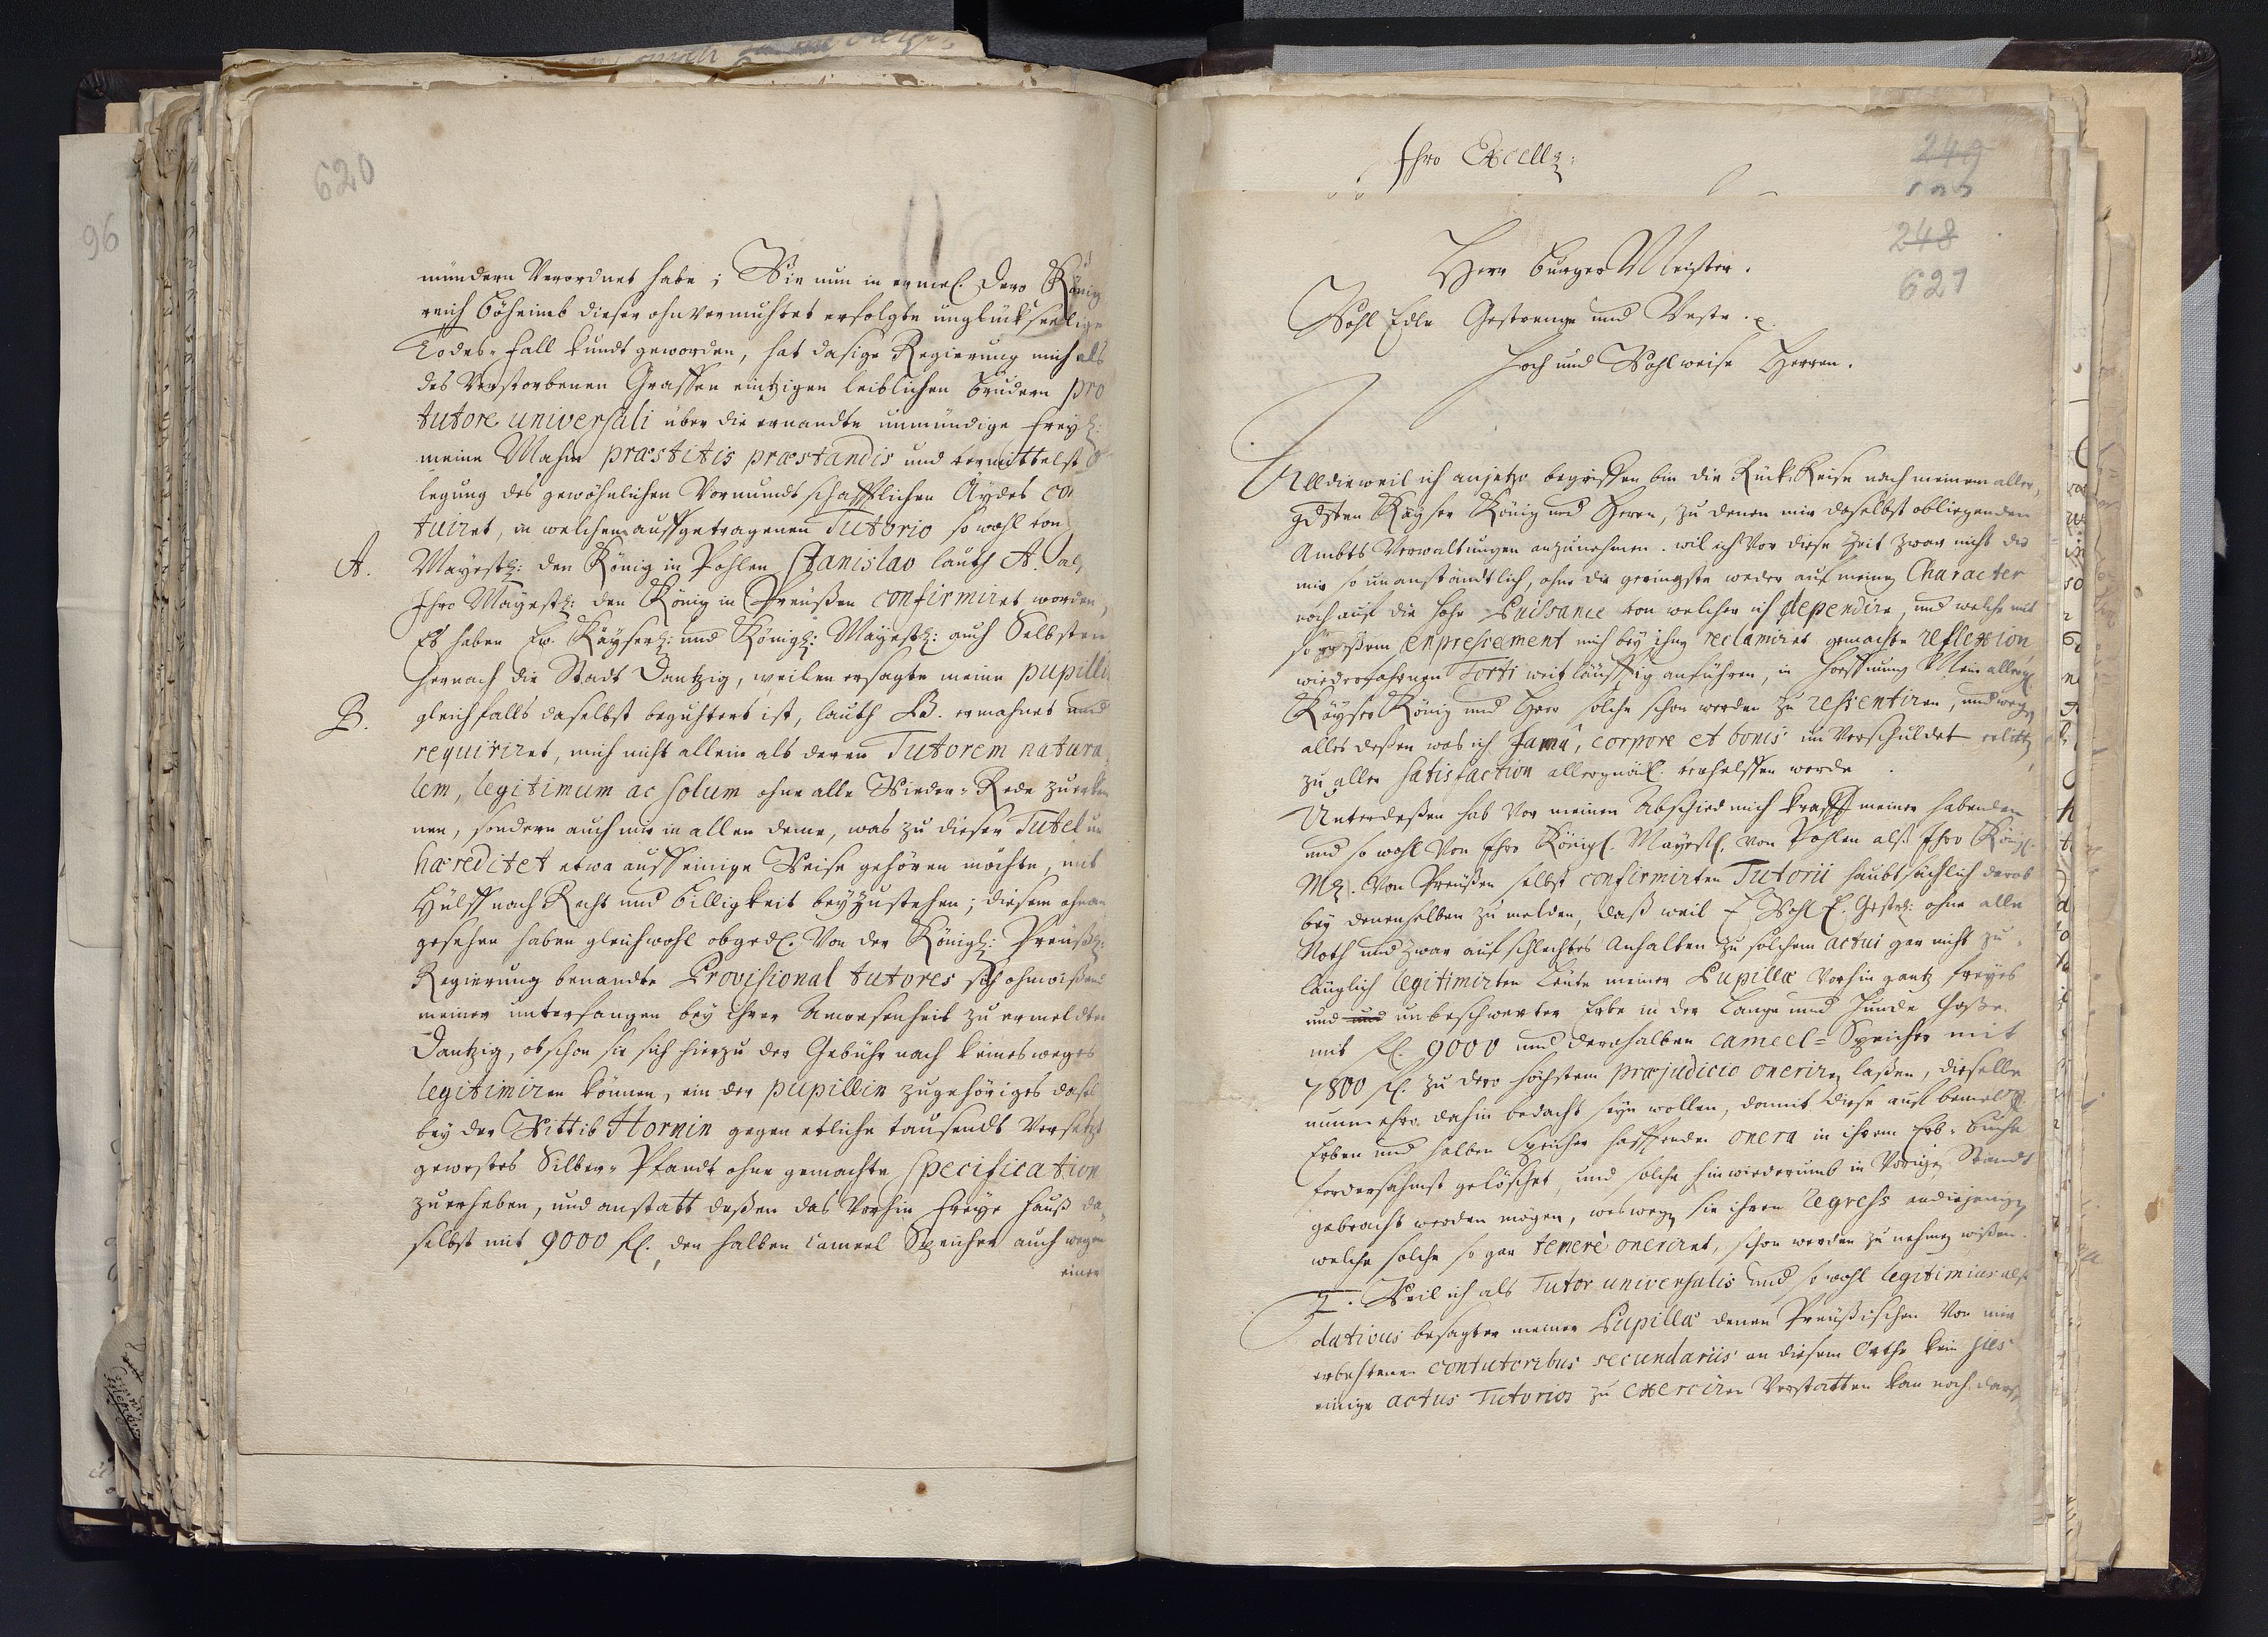 620
mündern Verordnet habe; Wie nun in ermel. Dero König
reich Böheimb dieser ohnvermuhtet erfolgte unglückseelige
Todes-Fall kundt geworden, hat dasige Regierung mich als
des Verstorbenen Graffen eintzigen leiblichen Brudern pro
tutore universali über die ernandte unmündige Freyl:
meine Mahm præstitis præstandis und vermittelst
legung des gewöhnlichen Vormundtschafftlichen Aydes
tuiret, in welchem auffgetragenen Tutorio so wohl von
A. Mayestl: den König in Pohlen Stanislao lauth A.
Ihro Mayestl: den König in Preüßen confirmiret worden,
Es haben Ew. Kayserl: und Königl: Mayestl: auch Selbsten
hernach die Stadt Dantzig, weilen ersagte meine pupilli
B. gleichfalls daselbst beguhtert ist, lauth B. ermahnet und
requiriret, mich nicht allein als deren Tutorem natura
lem, legitimum ac solum ohne alle Wieder-Rede zuerken
nen, sondern auch mir in allen deme, was zu dieser Tutel
hæreditet etwa auff einige Weise gehören möchte, mit
Hülff nach Recht und Billigkeit beyzustehen; diesem ohnan
gesehen haben gleichwohl obgedl. Von der Königl: Preüßl:
Regierung benandte Provisional tutores sich ohnwißend
meiner unterfangen bey ihrer Anwesenheit zu ermeldten
Dantzig, obschon sie sich hierzu der Gebühr nach keinesweges
legitimiren können, ein der pupillin zugehöriges
bey der Wittib Hornin gegen etliche tausendt Versetzt
gewestes Silber-Pfandt ohne gemachte Specification
zuerheben, und anstatt deßen das Vorhin freye Hauß da-
selbst mit 9000 fl. den halben Cameel Speicher auch wegen
einer
Ihro Excell:
249
248
621
Herr Burger Meister.
Wohl Edle Gestrenge und Veste.
Hoch und Wohlweise Herren.
Alldieweil ich anjetzo begriffen bin die Rück-Reise nach meinem aller-
gdsten Kayser König und Herrn, zu denen mir daselbst obliegenden
Ambts Verwaltungen anzunehmen. wil ich Vor diese Zeit zwar nicht die
mir so unanständtlich, ohne die geringste weder auf meinen Character
noch auf die hohe Puissance von welcher ich dependire, und welche mit
so großem enpressement mich bey ihnen reclamiret gemachte reflexion
wiederfahrnen Torti weitläuffig anführen, in Hoffnung Mein allergl.
Kayser König und Herr solche schon werden zu ressentiren, und wegen
alles deßen was ich fama, corpore et bonis un Verschuldet
zu aller satisfaction allergnädl. verhelffen werde.
Unterdeßen hab Vor meinen Abschied mich krafft meiner habenden
und so wohl Von Ihro Königl. Mayestl. von Pohlen alß Ihro Königl.
Mtl. Von Preüßen selbst confirmirten Tutorii haubtsächlich derob
bey denenselben zu melden, daß weil Wohl E. Gestrl: ohne alle
Noth und zwar auf schlechtes Anhalten zu solchem actui gar nicht zu-
länglich legitimirten Leute meiner Pupillæ Vorhin gantz freyes
und und unbeschwertes Erbe in der Lange und Hunde Gaße.
mit fl. 9000 und deroselben Cameel-Speicher mit
7800 fl. zu dero höchstem præjudicio oneriren laßen, dieselbe
nunmehro dahin bedacht seyn wollen, damit diese auf bemeldte
Erben und halben Speicher hafftende onera in ihrem Erb-Buche
fordersahmst gelöschet, und solche hinwiederumb in Vorigen Standt
gebracht werden mögen, weswegen sie ihren regress an diejenigen
welche solche so gar temerè oneriret, schon werden zu nehmen wißen.
2. Weil ich als Tutor universalis und so wohl legitimus als
dativus besagter meiner Pupillæ denen Preüßischen Von mir
erbehtenen contutoribus secundariis an diesem Orthe kein jus
einige actus Tutorios zu exerciren Verstatten kan noch darff
96